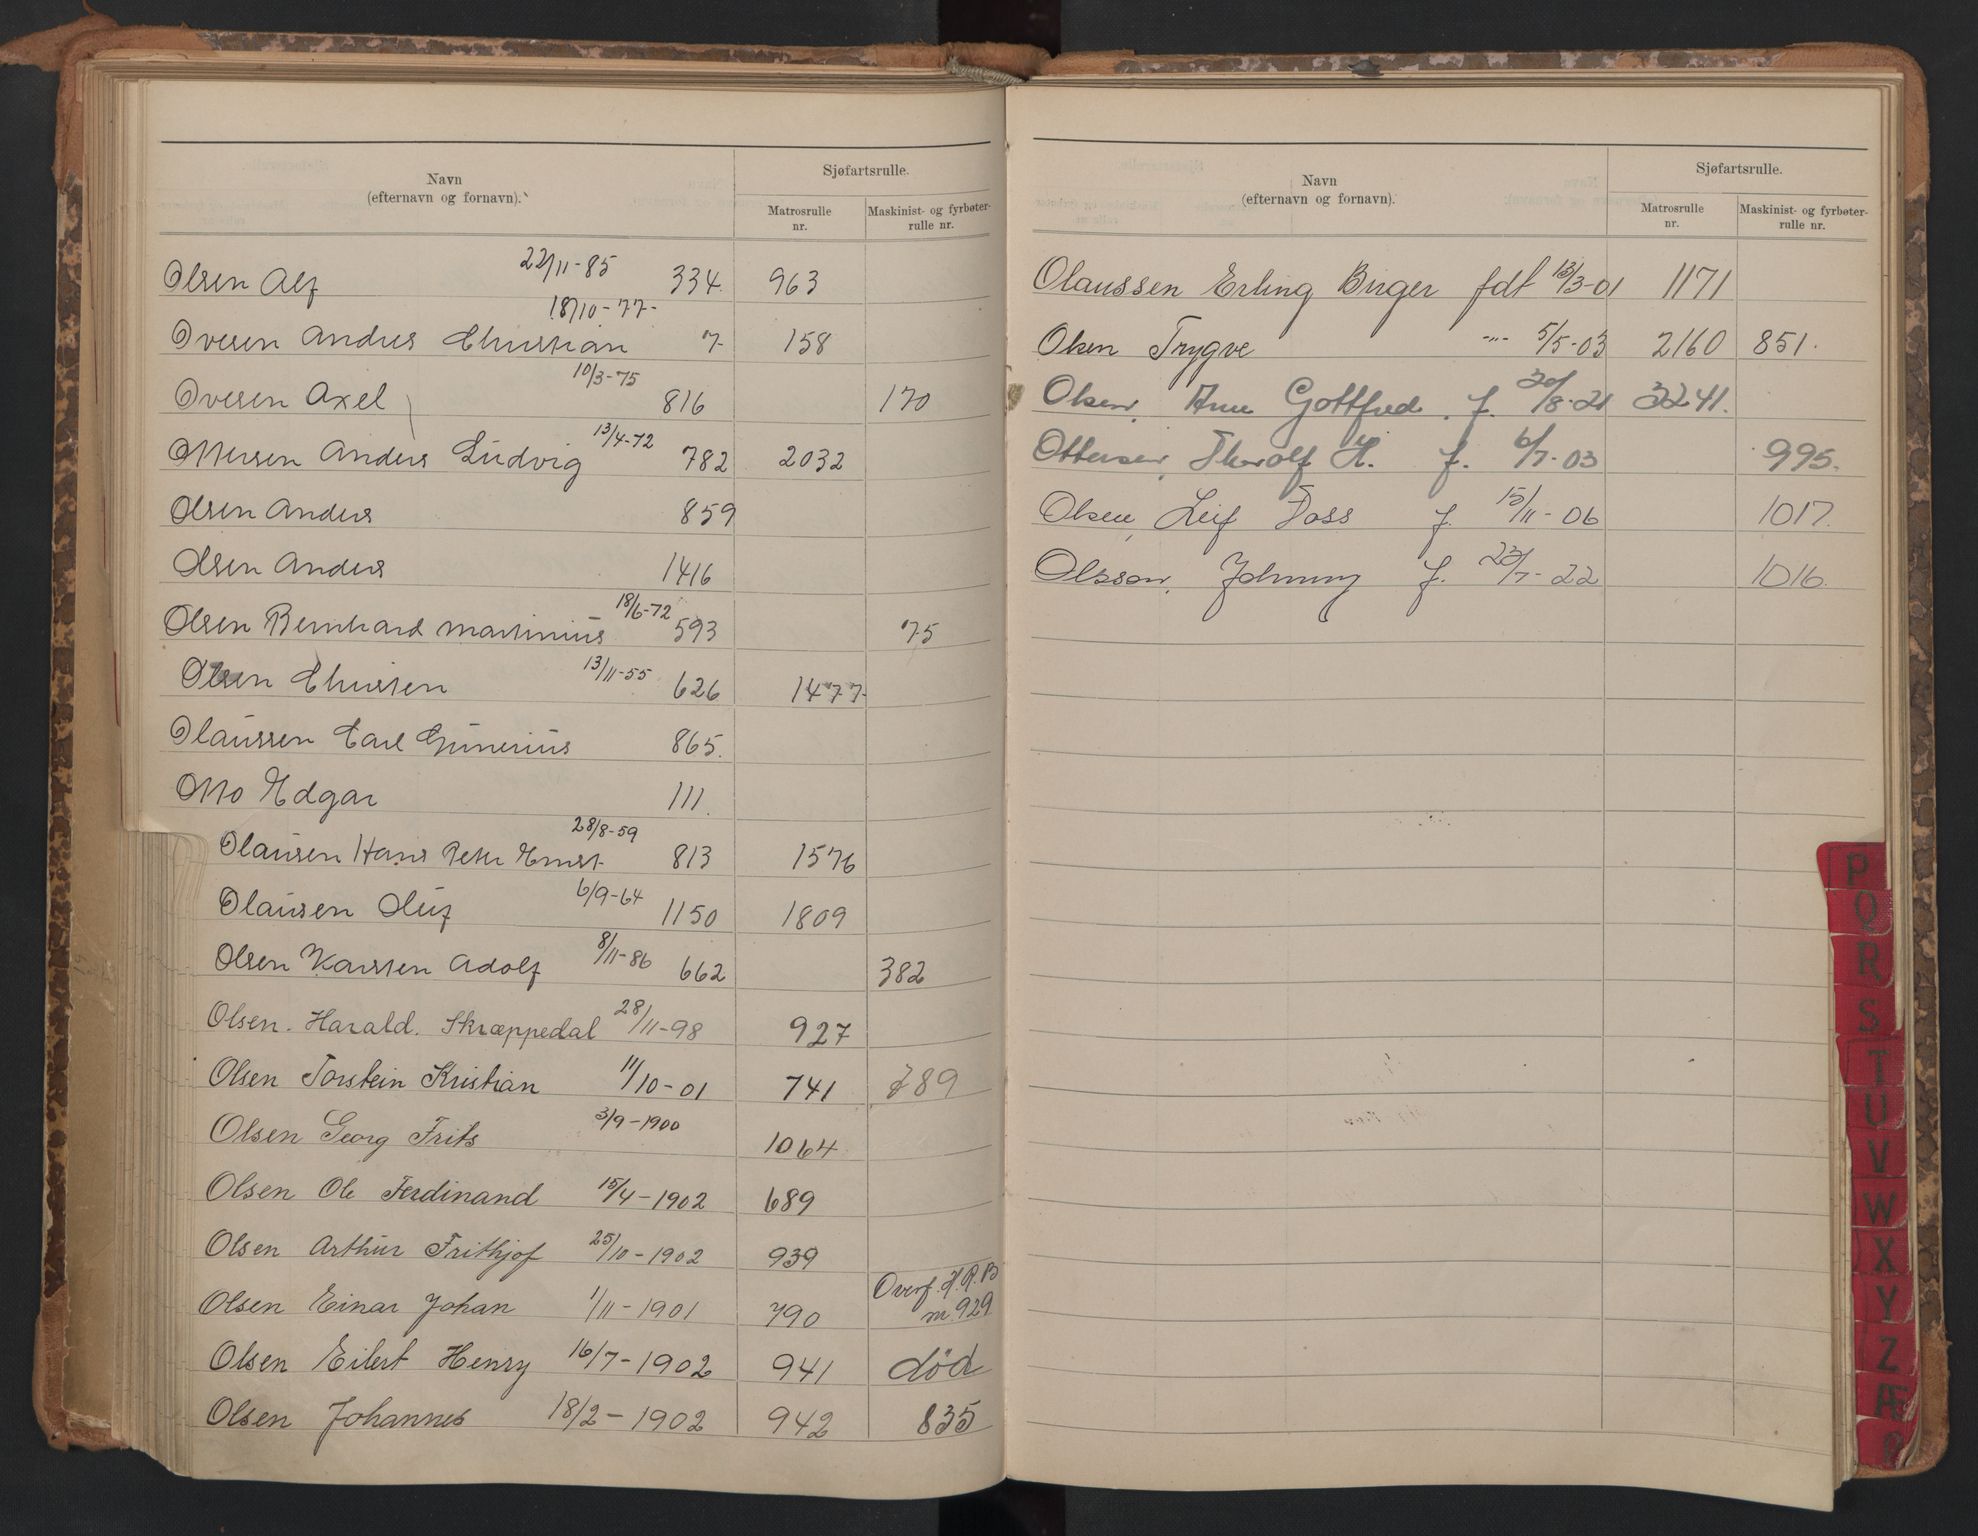 Navn
(efternavn og fornavn).
Sjøfartsrulle.
Matrosrulle
nr.
Maskinist- og fyrbøter-
rulle nr.
Olsen Alf 22/11-85 334. 963
Ovesen Anders Christian 18/10-77- 7- 158
Ovesen Axel 10/3-75 816 170
Ottersen Anders Ludvig 13/4-72 782 2032
Olsen Anders 859
Olsen Anders 1416
Olsen Bernhard Martinius 18/6-72 593 75
Olsen Christen 13/11-55 626 1477-
Olaussen Carl Gunerius 865.
Otto Edgar 111.
Olausen Hans Peter Ernst 28/8-59 813 1576
Olausen Oluf 6/9-64 1150 1809
Olsen Karsten Adolf 8/11-86 662 382
Olsen. Harald. Skræppedal 28/11-98 927
Olsen Torstein Kristian 11/10-01 741 789
Olsen Georg Frits 3/9-1900 1064
Olsen Ole Ferdinand 15/4-1902 689
Olsen Arthur Frithjof 25/10-1902 939
Olsen Einar Johan 1/11-1901 790 Overf. H.R.B
nr. 929
Olsen Eilert Henry 16/7-1902 941 død
Olsen Johannes 18/2-1902 942 835
Navn
(efternavn og fornavn).
Sjøfartsrulle.
Matrosrulle
nr.
Maskinist- og fyrbøter-
rulle nr.
Olaussen Erling Birger fdt 13/3-01 1171
Olsen Trygve -"- 5/5-03 2160 851.
Olsen, Arne Gottfred. f. 30/8-21 3241.
Ottersen, Thorolf H. f. 6/7-03 995.
Olsen, Leif Foss f. 15/11-06 1017.
Olsson, Johnny f. 23/7-22 1016.
P
Q
R
S
T
U
V
W
X
Y
Z
Æ